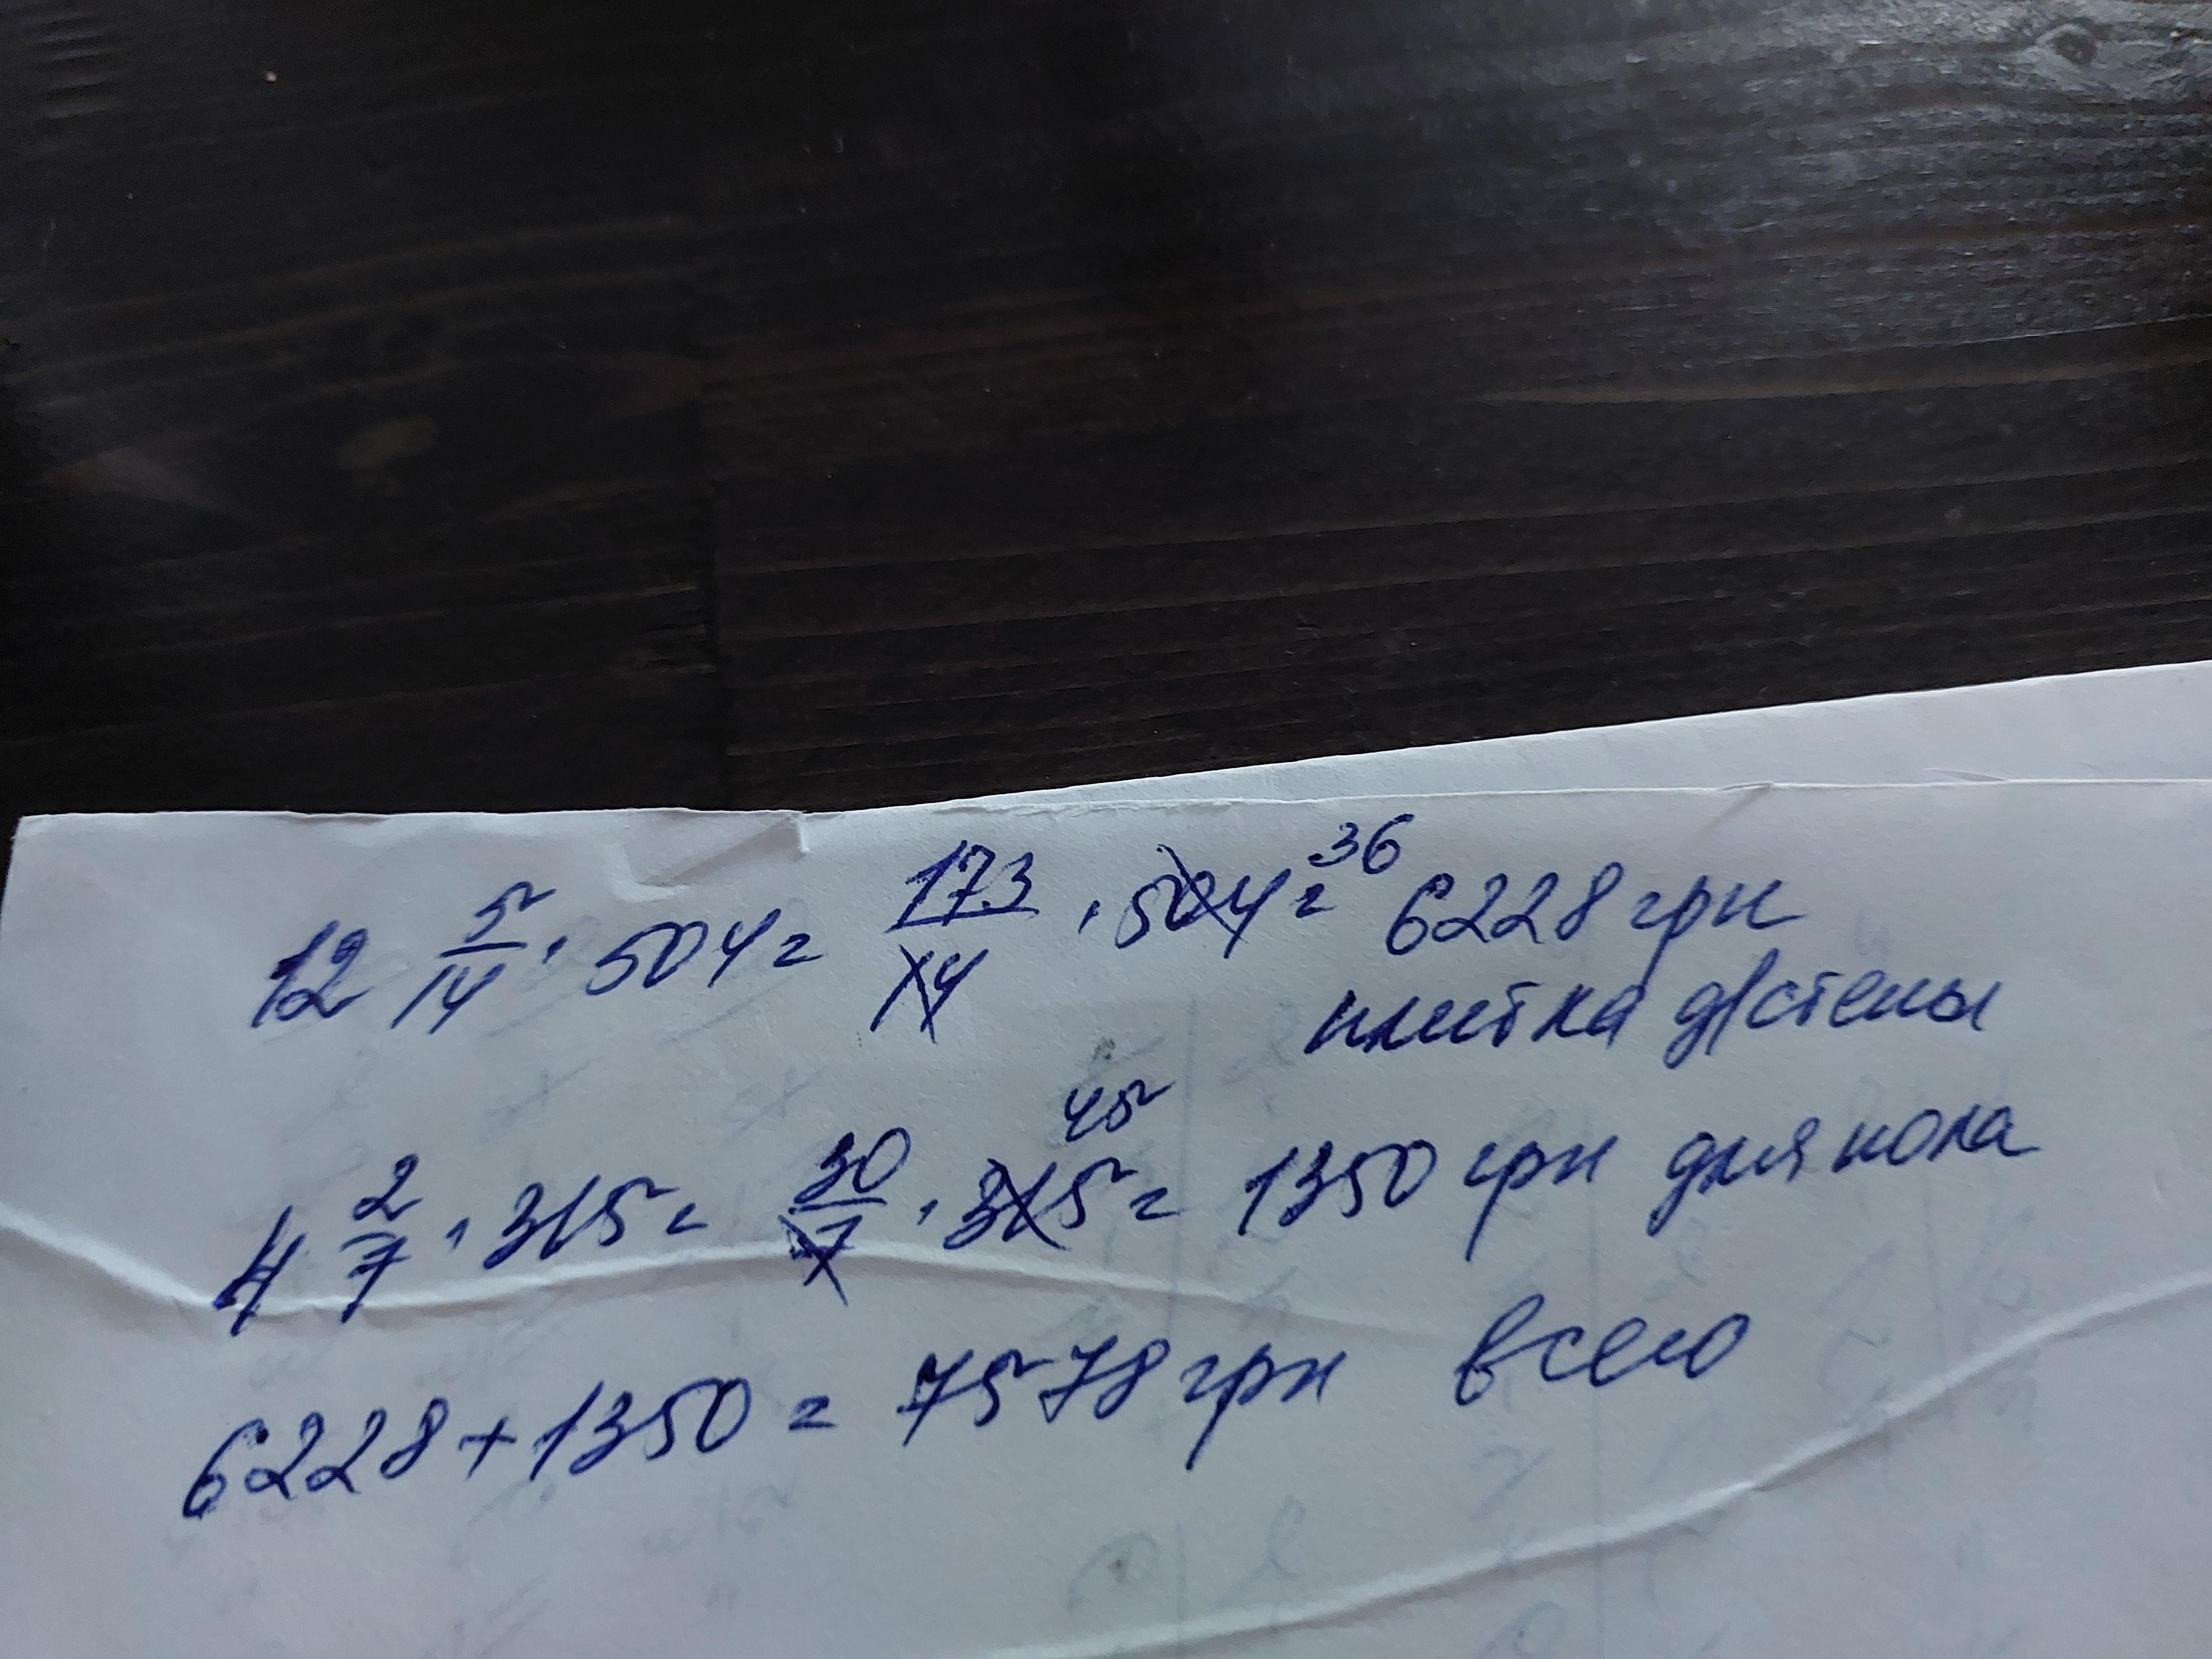 12 5/14 · 504 = 173/14 · 504 = 36 6228 грн
плитка д/стены
4 2/7 · 315 = 30/7 · 315 45 = 1350 грн для пола
6228 + 1350 = 7578 грн всего